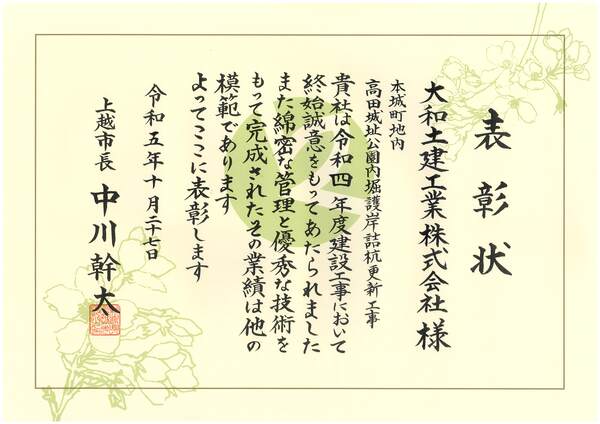 表彰状
大和土建工業株式会社様
本城町地内
高田城址公園内堀護岸詰杭更新工事
貴社は令和四年度建設工事において
終始誠意をもってあたられました
また綿密な管理と優秀な技術を
もって完成されたその業績は他の
模範であります
よってここに表彰します
令和五年十月二十七日
上越市長 中川幹太